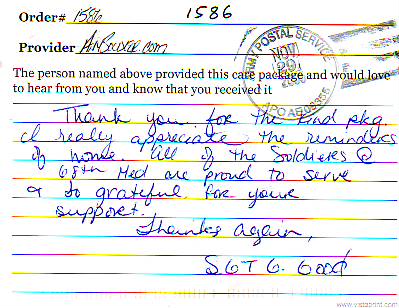 Order# 1586 1586
Provider AnSoldier.com
The person named above provided this care package and would love
to hear from you and know that you received it
ARMY POSTAL SERVICE
NOV
APO AE 09355
Thank you for the kind pkg
I really appreciate the reminders
of home. All of the Soldiers @
68th Med are proud to serve
& so grateful for your
support.
Thanks again,
SGT G. Good
www.vistaprint.com